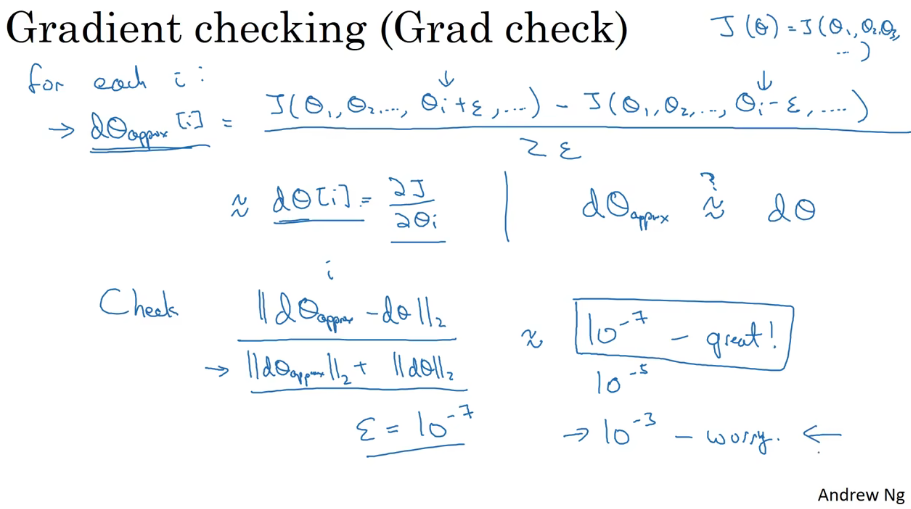 Gradient checking (Grad check)
J(θ) = J(θ₁, θ₂, θ₃, ...)
for each i:
→ dθapprox[i] = J(θ₁, θ₂, ..., θi+ε, ...) - J(θ₁, θ₂, ..., θi-ε, ...)
2ε
≈ dθ[i] = ∂J/∂θi | dθapprox ≈? dθ
i
Check ||dθapprox - dθ||₂
→ ||dθapprox||₂ + ||dθ||₂
≈ 10⁻⁷ - great!
10⁻⁵
ε = 10⁻⁷
→ 10⁻³ - worry. ←
Andrew Ng